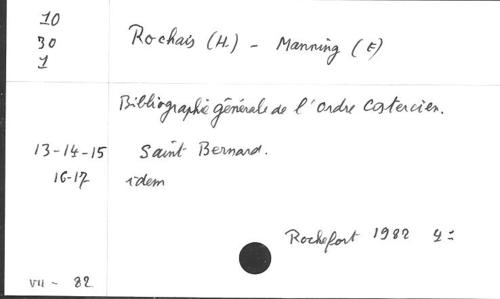 10
30
1
Rochais (H) - Manning (E)
Bibliographie générale de l'Ordre cistercien.
13-14-15 Saint Bernard.
16-17 idem
Rochefort 1982 4=
VII - 82